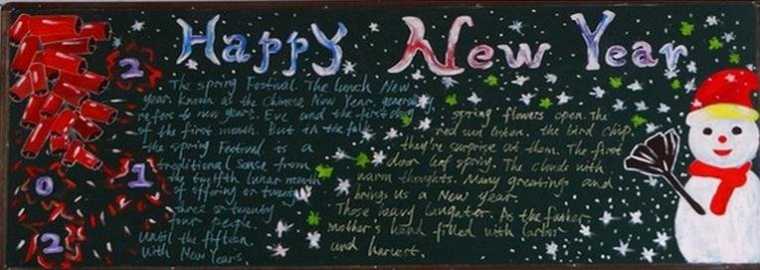 Happy New Year
2
0
1
2
The spring Festival. The lunch New
year known as the Chinese New Year, generally
refers to new years. Eve and the first day
of the first month. But in the folk
the spring Festival is a
traditional sense from
the twelfth lunar month
of offering or twenty
three or twenty
four people.
until the fifteen.
With New Years
spring flowers open. The
red sun listen. the bird chip
they're surprise at them. The first
door leaf spring. The clouds with
warm thoughts. Many greetings and
brings us a New year.
Those heavy laughter. As the father
mother's hand filled with labor
and harvest.